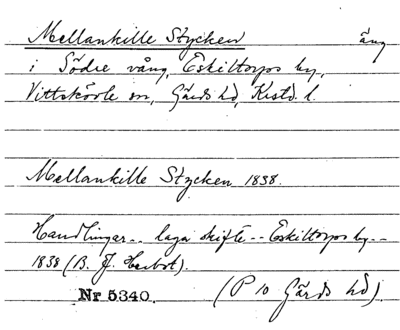 Mellankille Stycken äng
i Södre vång, Eskiltorps by,
Vittskövle sn, Gärds hd, Kristd. l.
Mellankille Stycken 1838.
Handlingar -- laga skifte -- Eskiltorps by --
1838 (B. J. Herbst).
Nr 5340. (P 10 Gärds hd).